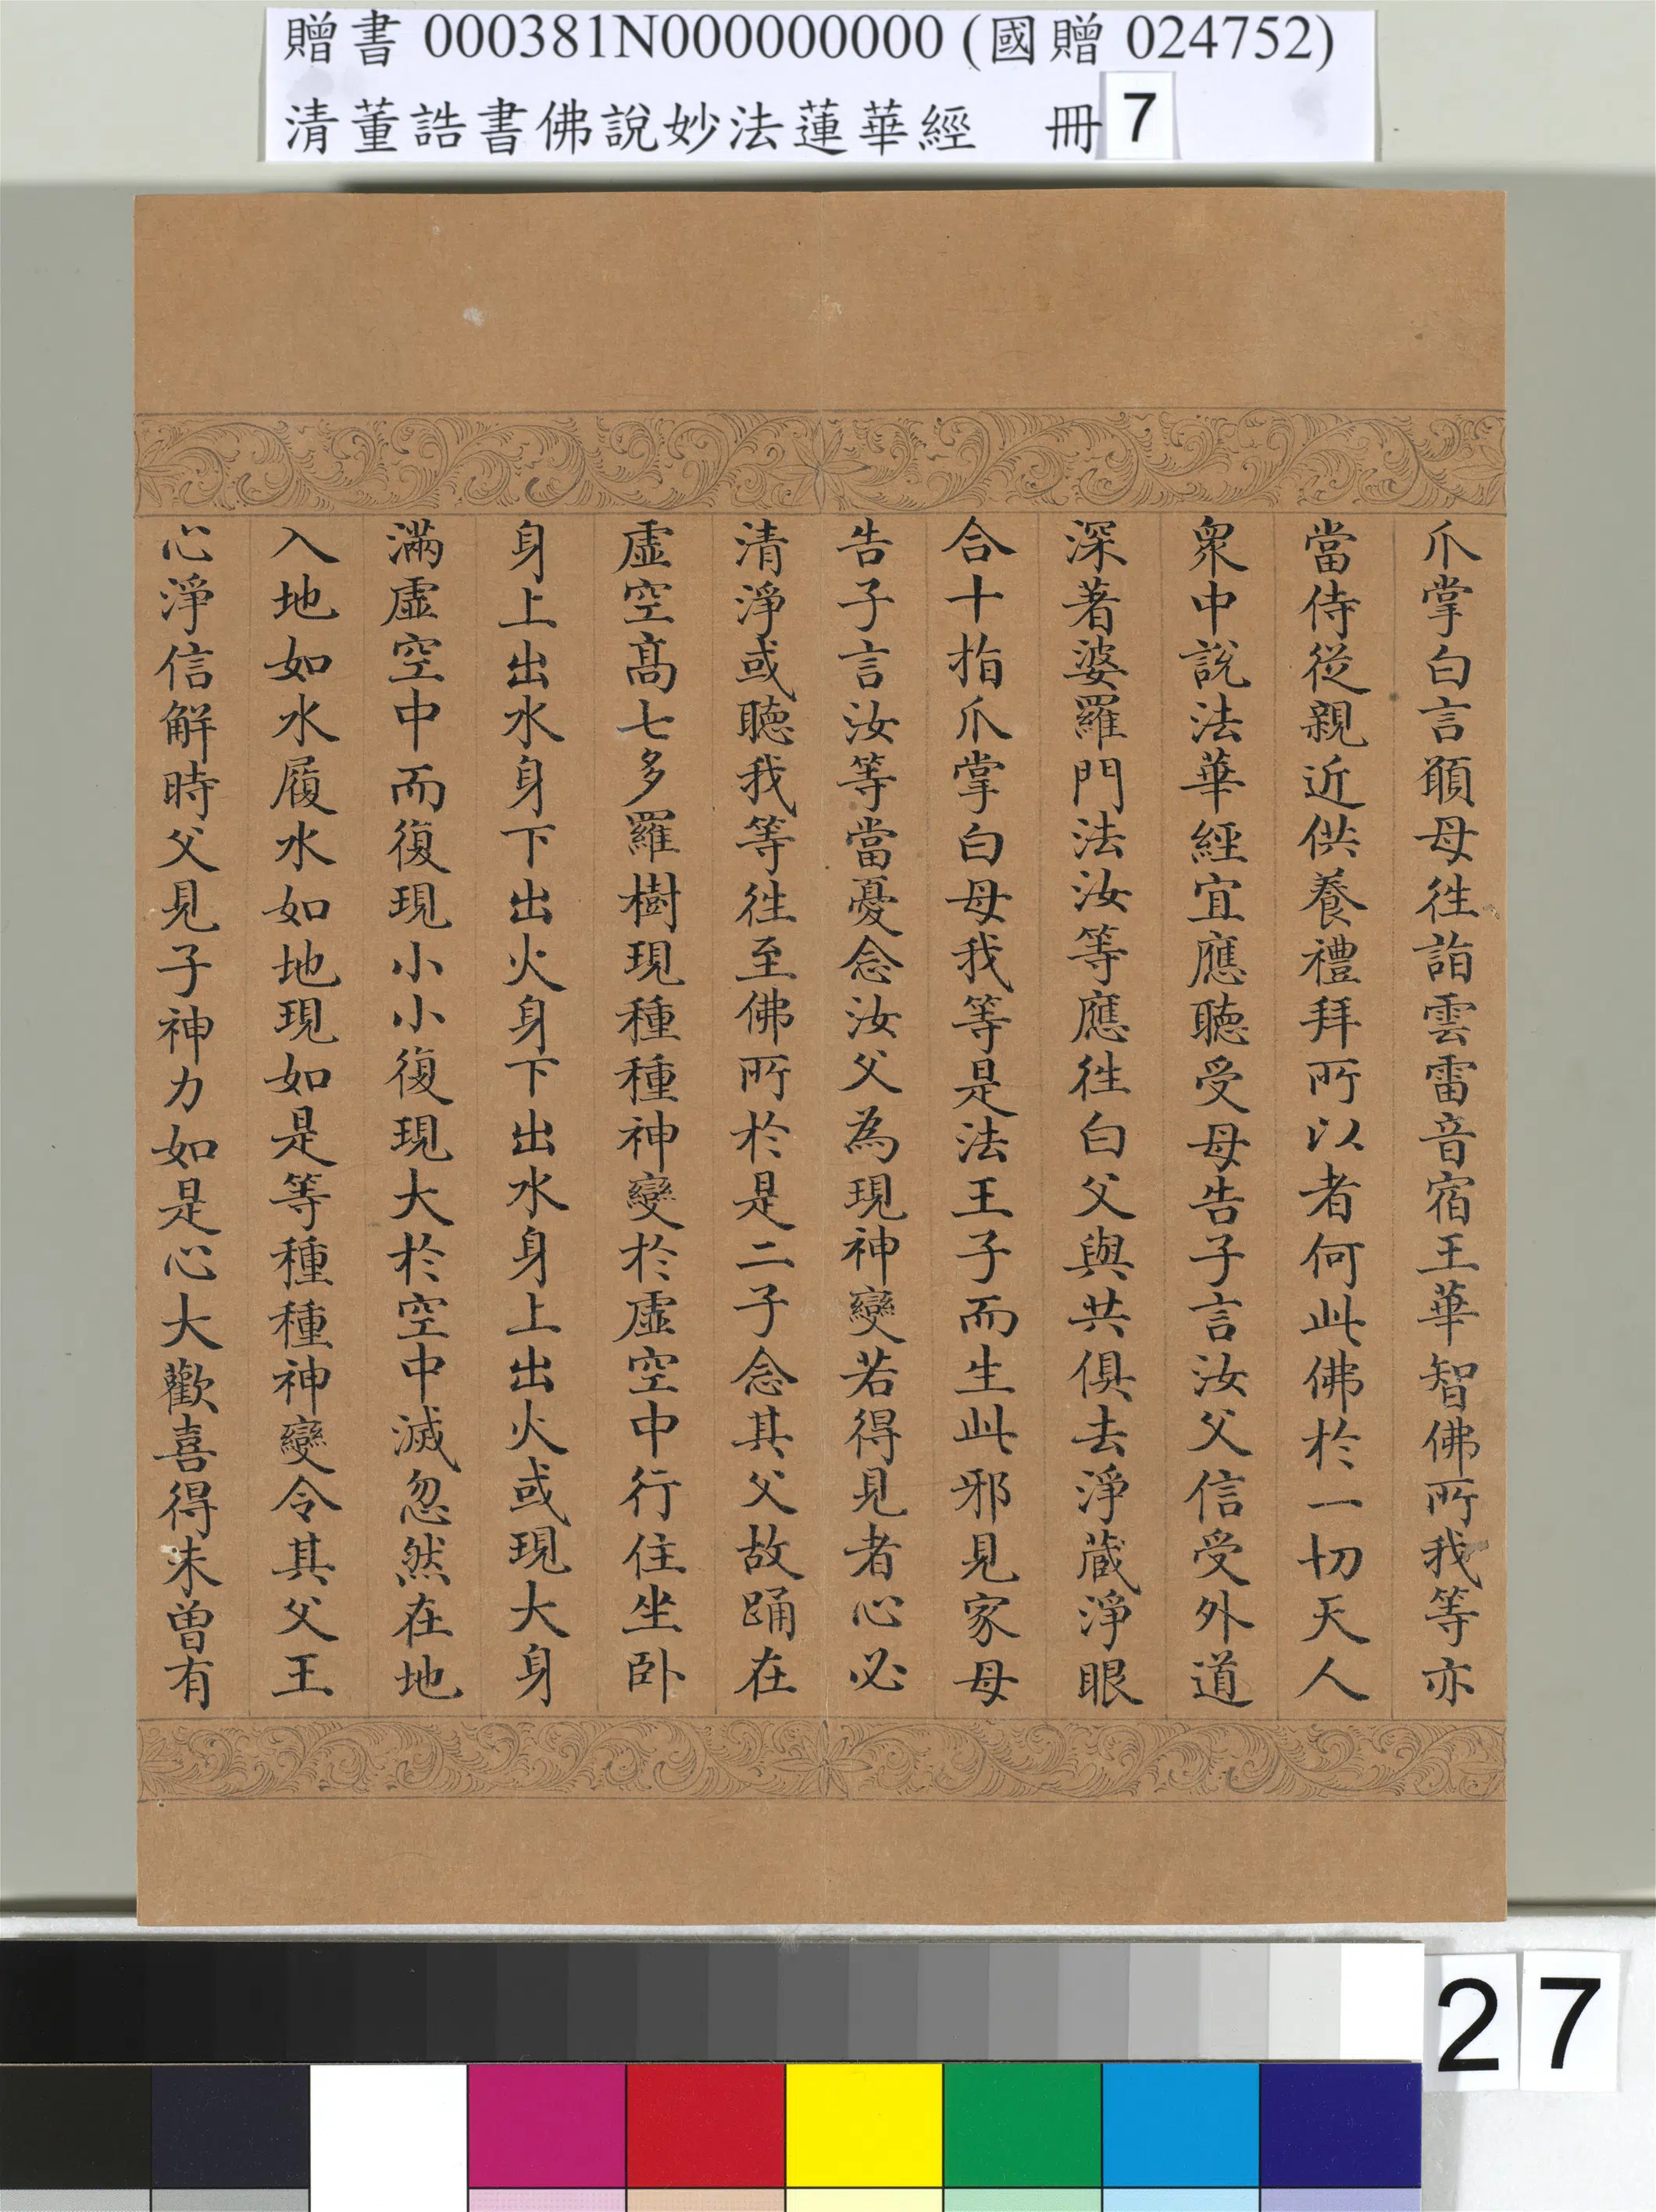 贈書 000381N000000000 (國贈 024752)
清董誥書佛說妙法蓮華經 冊 7
爪掌白言願母徃詣雲雷音宿王華智佛所我等亦
當侍從親近供養禮拜所以者何此佛於一切天人
衆中說法華經宜應聽受母告子言汝父信受外道
深著婆羅門法汝等應徃白父與共俱去淨藏淨眼
合十指爪掌白母我等是法王子而生此邪見家母
告子言汝等當憂念汝父為現神變若得見者心必
清淨或聽我等徃至佛所於是二子念其父故踊在
虛空高七多羅樹現種種神變於虛空中行住坐卧
身上出水身下出火身下出水身上出火或現大身
滿虛空中而復現小小復現大於空中滅忽然在地
入地如水履水如地現如是等種種神變令其父王
心淨信解時父見子神力如是心大歡喜得未曾有
27